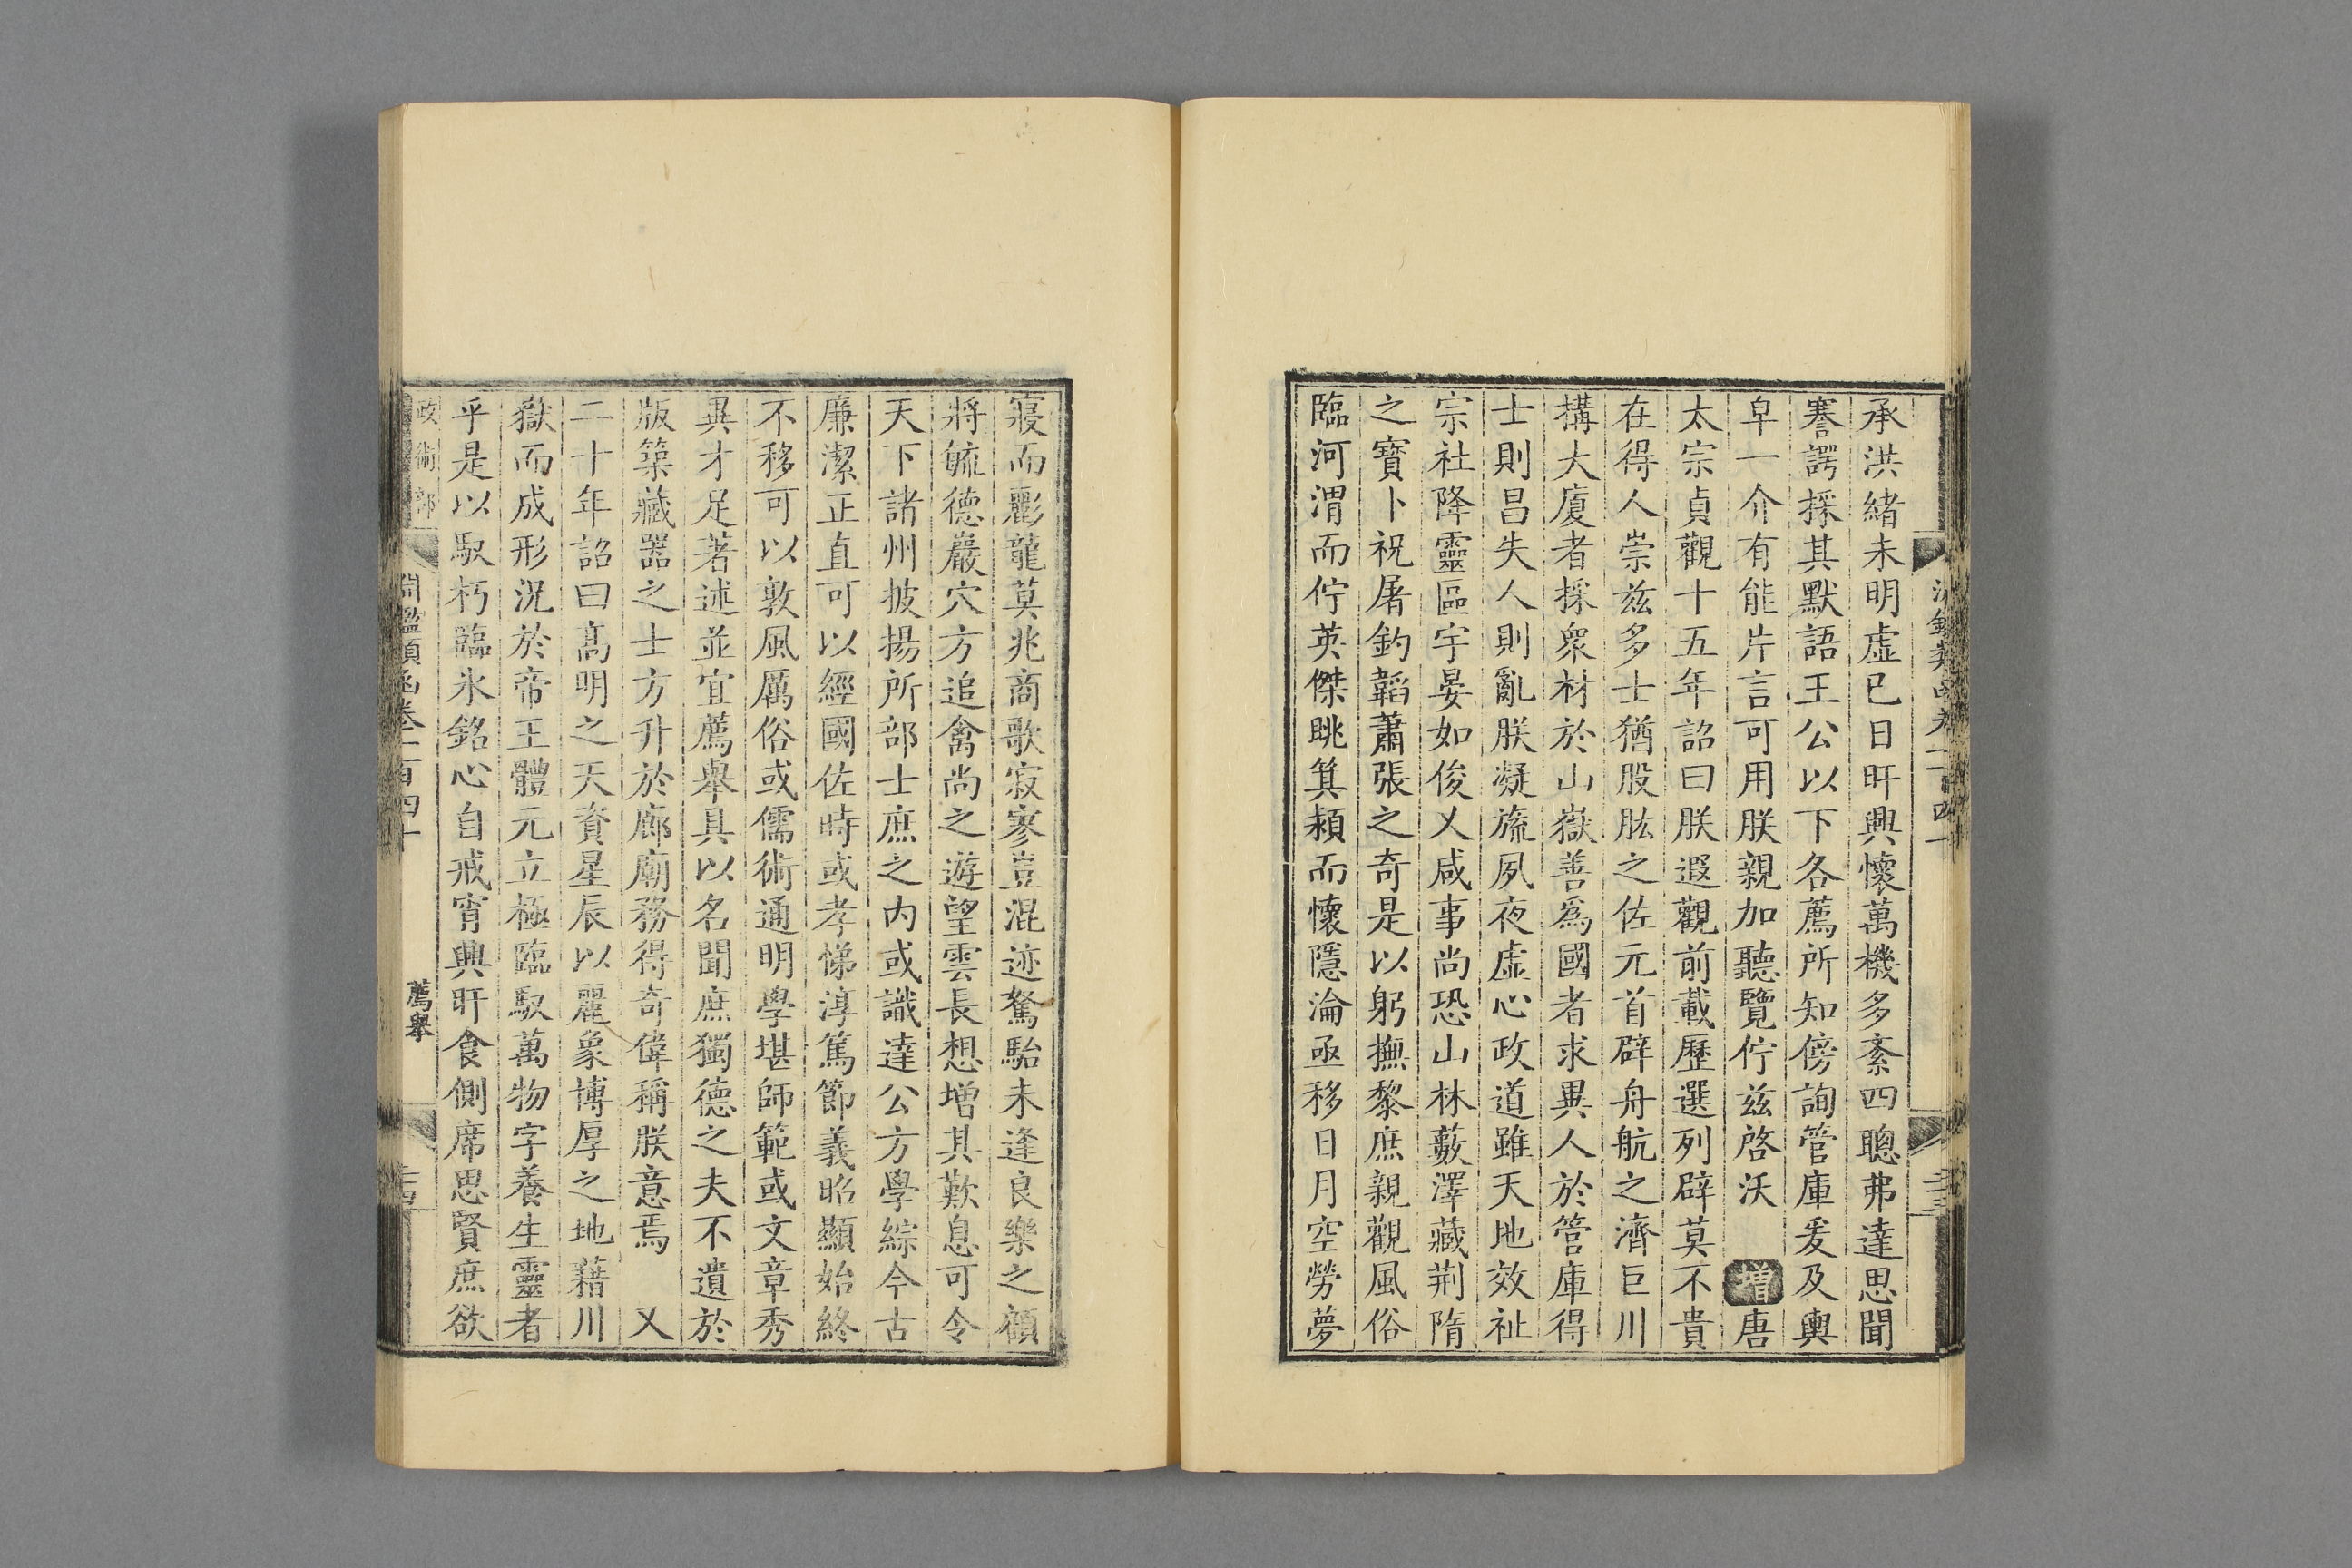 承洪緒未明虛已日旰興懷萬機多紊四聰弗達思聞
謇諤採其默語王公以下各薦所知傍詢管庫爰及輿
皁一介有能片言可用朕親加聽覽佇兹啓沃 增 唐
太宗貞觀十五年詔曰朕遐觀前載歷選列辟莫不貴
在得人崇兹多士猶股肱之佐元首辟舟航之濟巨川
搆大廈者採衆材於山嶽善爲國者求異人於管庫得
士則昌失人則亂朕凝旒夙夜虛心政道雖天地效祉
宗社降靈區宇晏如俊乂咸事尚恐山林藪澤藏荆隋
之寶卜祝屠釣韜蕭張之奇是以躬撫黎庶親觀風俗
臨河渭而佇英傑眺箕潁而懷隱淪亟移日月空勞夢
寢而彲龍莫兆商歌寂寥豈混迹駑駘未逢良樂之顧
將毓德巖穴方追禽尚之遊望雲長想增其歎息可令
天下諸州披揚所部士庶之内或識達公方學綜今古
廉潔正直可以經國佐時或孝悌淳篤節義昭顯始終
不移可以敦風厲俗或儒術通明學堪師範或文章秀
異才足著述並宜薦舉具以名聞庶獨德之夫不遺於
版築藏器之士方升於廊廟務得奇偉稱朕意焉 又
二十年詔曰髙明之天資星辰以麗象博厚之地藉川
嶽而成形況於帝王體元立極臨馭萬物字養生靈者
乎是以馭朽臨氷銘心自戒宵興旰食側席思賢庶欲
政術部
淵鑑類函卷一百四十 薦舉